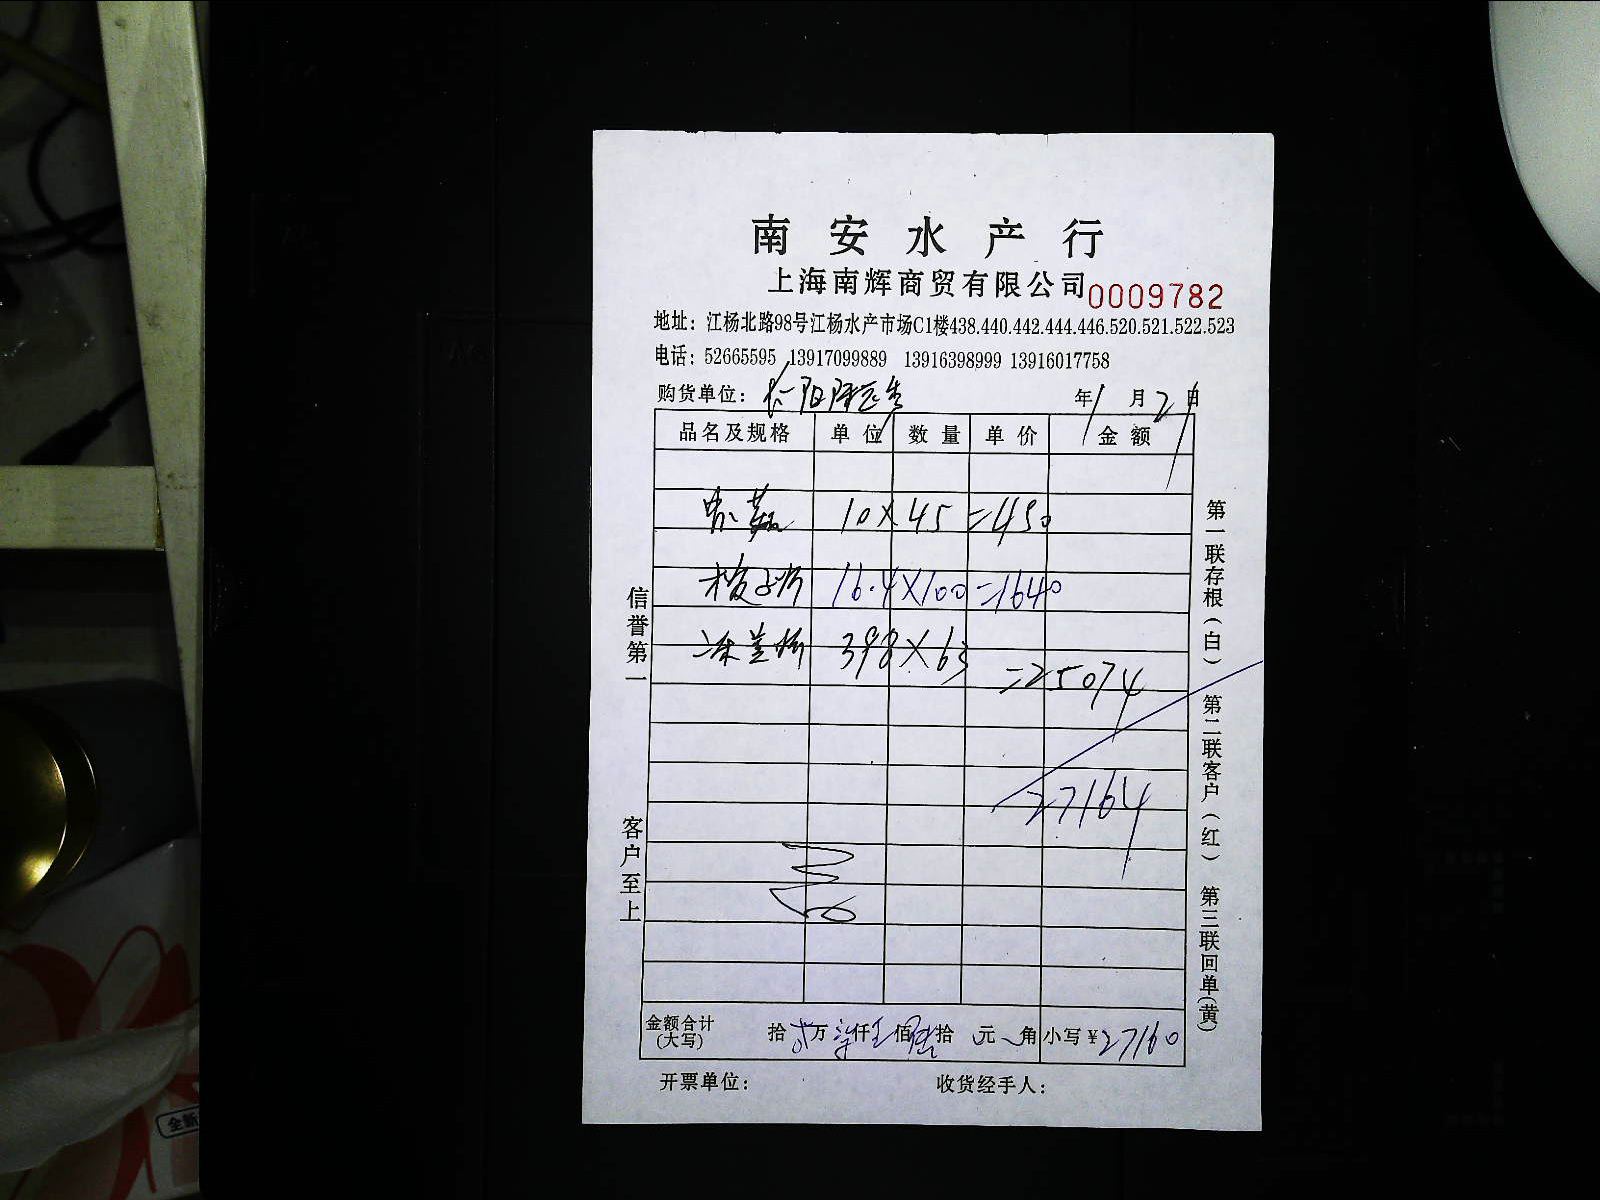 南安水产行
上海南辉商贸有限公司 0009782
地址：江杨北路98号江杨水产市场C1楼438.440.442.444.446.520.521.522.523
电话：52665595 13917099889 13916398999 13916017758
购货单位： 年1月21日
品名及规格 单位 数量 单价 金额
10×45=450
16.4×100=1640
398×63
=25074
27164
金额合计(大写) 拾贰万柒仟壹佰陆拾元 角 小写¥27160
开票单位： 收货经手人：
信誉第一
客户至上
第一联存根(白) 第二联客户(红) 第三联回单(黄)
全新